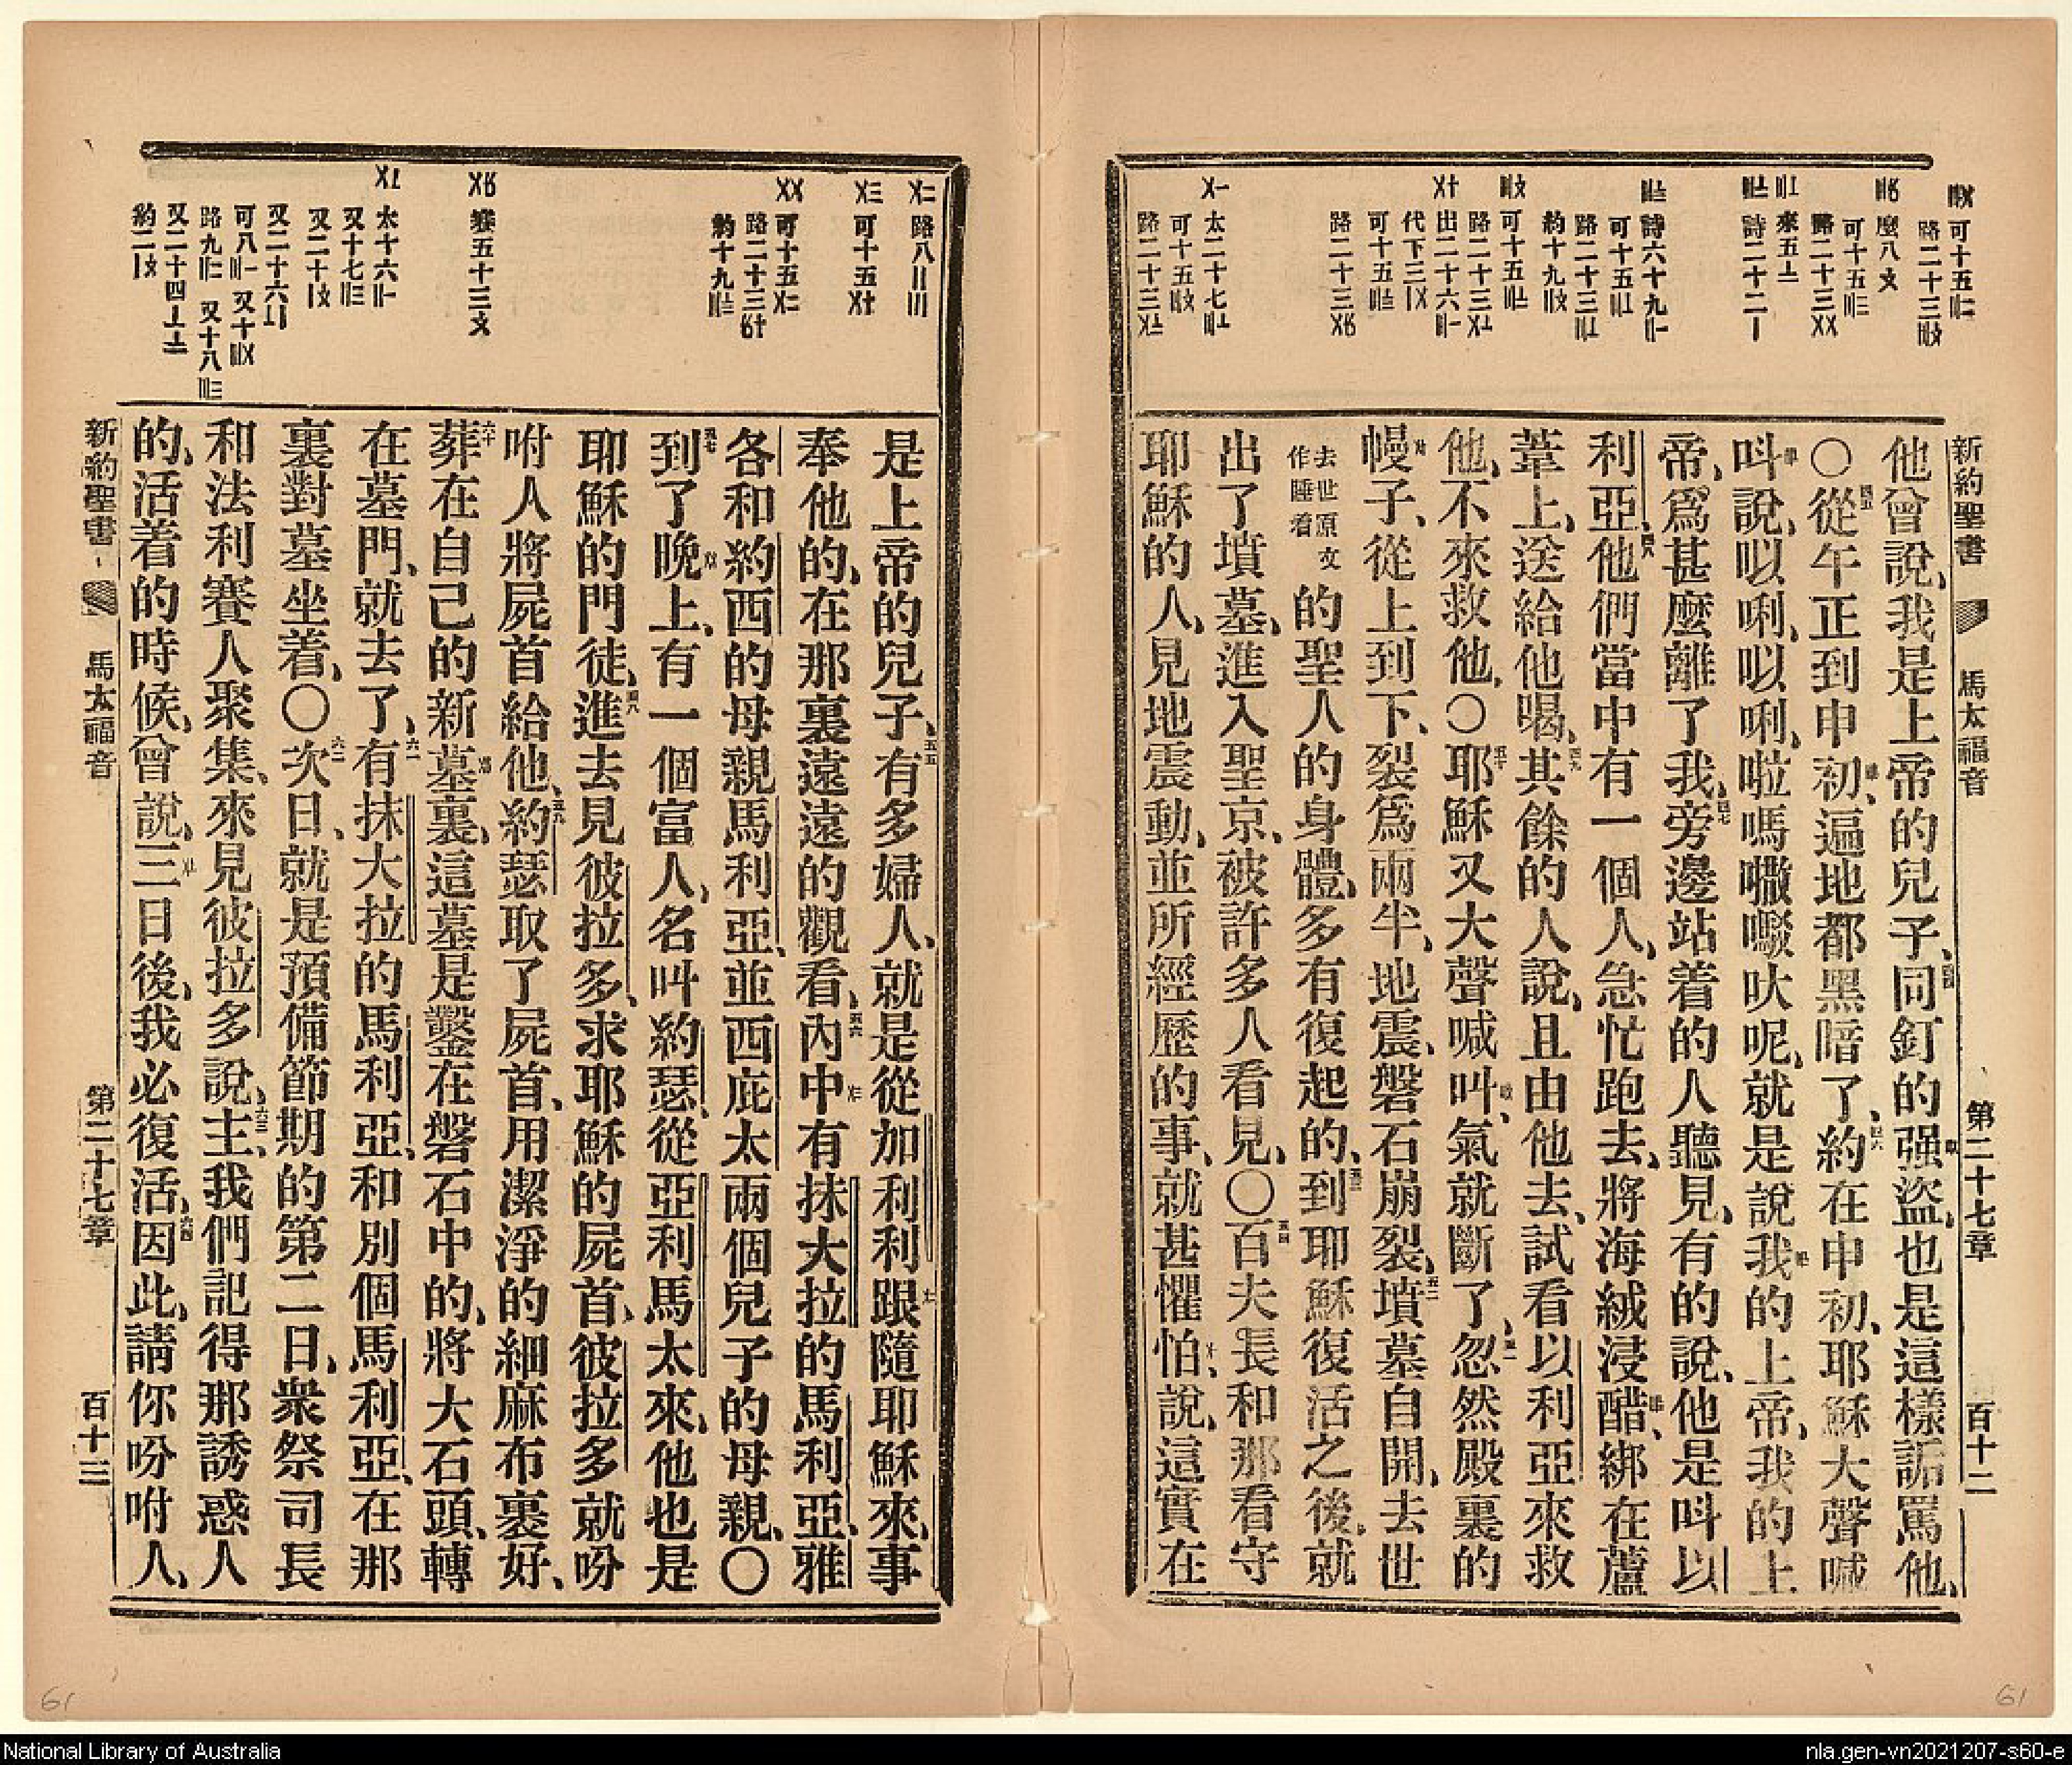 新約聖書 馬太福音 第二十七章 百十二
他曾說、我是上帝的兒子、同釘的强盜、也是這樣詬罵他、
〇從午正到申初、遍地都黑暗了、約在申初、耶穌大聲喊
呌說、㕥唎、㕥唎、啦嗎㘔㗧吠呢、就是說我的上帝、我的上
帝、爲甚麽離了我、旁邊站着的人聽見、有的說、他是呌以
利亞、他們當中有一個人、急忙跑去、將海絨浸醋、綁在蘆
葦上、送給他喝、其餘的人說、且由他去、試看以利亞來救
他、不來救他、〇耶穌又大聲喊叫、氣就斷了、忽然殿裏的
幔子、從上到下、裂爲兩半、地震、磐石崩裂、墳墓自開、去世
去世原文作睡着 的聖人的身體、多有復起的、到耶穌復活之後、就
出了墳墓、進入聖京、被許多人看見、〇百夫長和那看守
耶穌的人、見地震動、並所經歷的事、就甚懼怕、說、這實在
是上帝的兒子、有多婦人、就是從加利利跟隨耶穌來、事
奉他的、在那裏遠遠的觀看、內中有抹大拉的馬利亞、雅
各和約西的母親馬利亞、並西庇太兩個兒子的母親、〇
到了晚上、有一個富人、名叫約瑟、從亞利馬太來、他也是
耶穌的門徒、進去見彼拉多、求耶穌的屍首、彼拉多就吩
咐人將屍首給他、約瑟取了屍首、用潔淨的細麻布裹好、
葬在自己的新墓裏、這墓是鑿在磐石中的、將大石頭、轉
在墓門、就去了、有抹大拉的馬利亞、和別個馬利亞、在那
裏對墓坐着、〇次日、就是預備節期的第二日、衆祭司長
和法利賽人聚集、來見彼拉多說、主、我們記得那誘惑人
的、活着的時候、曾說、三日後、我必復活、因此、請你吩咐人、
新約聖書 馬太福音 第二十七章 百十三
61
61
National Library of Australia
nla.gen-vn2021207-s60-e